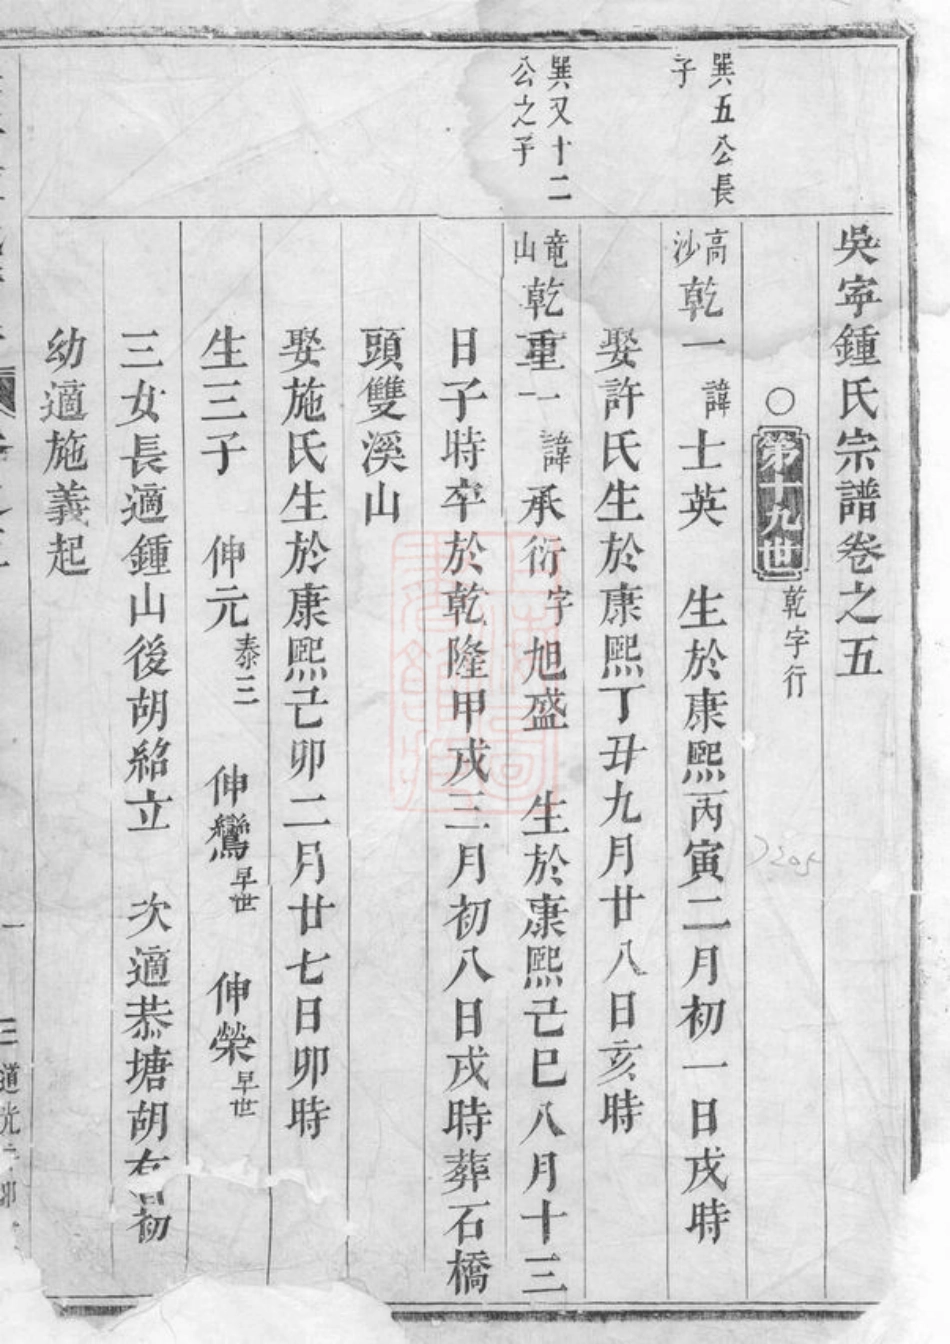 吳寧鍾氏宗譜卷之五
○第十九世 乾字行
巽五公長子
高沙 乾一 諱士英 生於康熙丙寅二月初一日戌時
娶許氏生於康熙丁丑九月廿八日亥時
巽又十二公之子
竜山 乾重一 諱承衍 字旭盛 生於康熙己巳八月十三
日子時卒於乾隆甲戌三月初八日戌時葬石橋
頭雙溪山
娶施氏生於康熙己卯二月廿七日卯時
生三子 伸元 泰三 伸鸞 早世 伸榮 早世
三女長適鍾山後胡紹立 次適恭塘胡 初
幼適施義起
道光